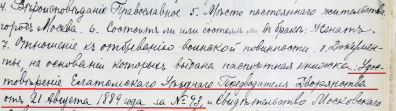 4. Вѣроисповѣданіе Православное 5. Мѣсто постояннаго жительства
городъ Москва. 6. Состоитъ ли или состоялъ въ бракѣ. Женатъ.
7. Отношеніе къ отбыванію воинской повинности. 8. Докумен-
ты, на основаніи которыхъ выдана паспортная книжка. Удос-
товѣреніе Елатомскаго Уѣзднаго Предводителя Дворянства
отъ 21 Августа 1889 года за № 93, и свидѣтельство Московскаго